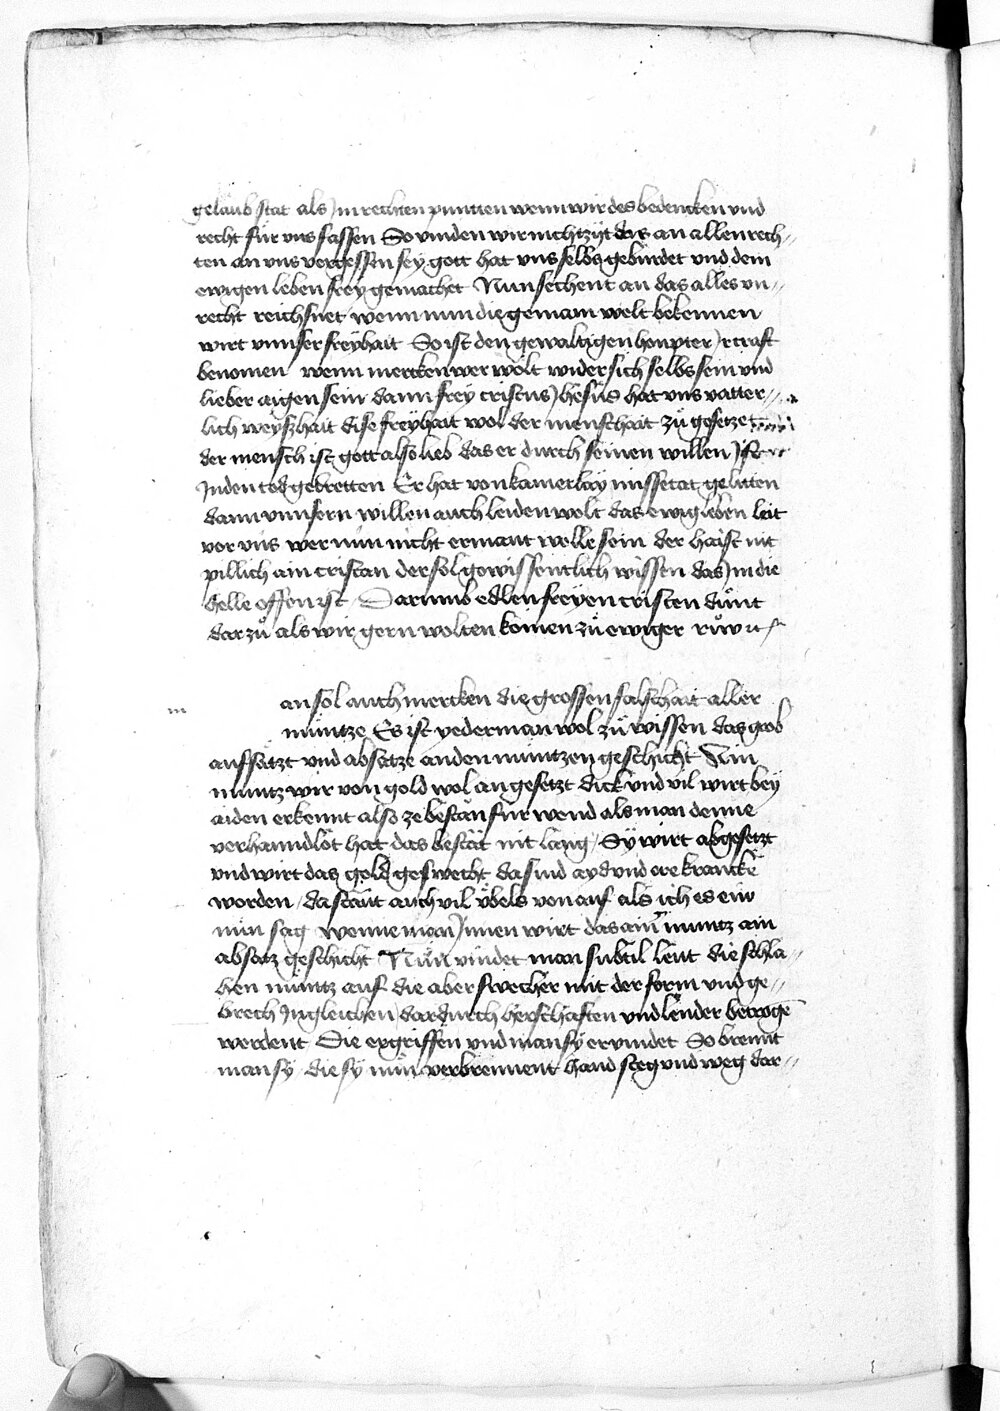 gelaub stat als Jn rechten puncten wenn wir des bedencken vnd
recht für vns fassen So vinden wir nicht zyt das an allen rech„
ten an vns vergessen sey gott hat vns selbs gebürdet vnd dem
ewigen leben frey gemachet Nun sechent an das alles vn„
recht reichsnet wenn nun die gemain welt bekennen
wirt vnnser freyhait So ist den gewaltigen houpter Jr craft
benomen wenn mercken wer wölt wider sich selbs sein vnd
lieber aigen sein dann frey cristus Jhesus hat vns vatter„
lich weyszhait dise freyhait wol der menschait zů gesetzet
der mensch ist gott also lieb das er durch seinen willen Jst
Jn den tod getretten Er hat von kainerlay missetat gelitten
dann vmb vnnsern willen auch leiden wolt das ewig leben leit
vor vns wer nun nicht ermant welle sein der haist nit
pillich ain cristan der sol gewissentlich wissen das Jm die
helle offen ist Darumb edlen freyen cristen důnt
dar zů als wir gern wolten komen zů ewiger růw
an sol auch mercken die grossen falschait aller
müntze Es ist yederman wol zů wissen das grob
auffsätzt vnd absätze an den müntzen geschicht Ain
müntz wir von gold wol angesetzt dick vnd vil wirt bey
aiden erkennt also ze bestan für wend als man denne
verhanndlot hat das bestät nit lang Sy wirt abgesetzt
vnd wirt das gold geswecht da sind ayd vnd ere kranck
worden da staut auch vil übels von auf als ich es ein
nün sag wenne man Jnnen wirt das ain müntz ain
absatz geschicht Nun vindet man subtil leut die schla„
hen müntz auf die aber swecher mit der form vnd ge„
brech Jn gleichen dardurch herschaften vnd lender betroge
werdent Die ergriffen vnd man sy ervindet So brennt
man sy die sy nun verbrennent hand steg vnd weg dar„